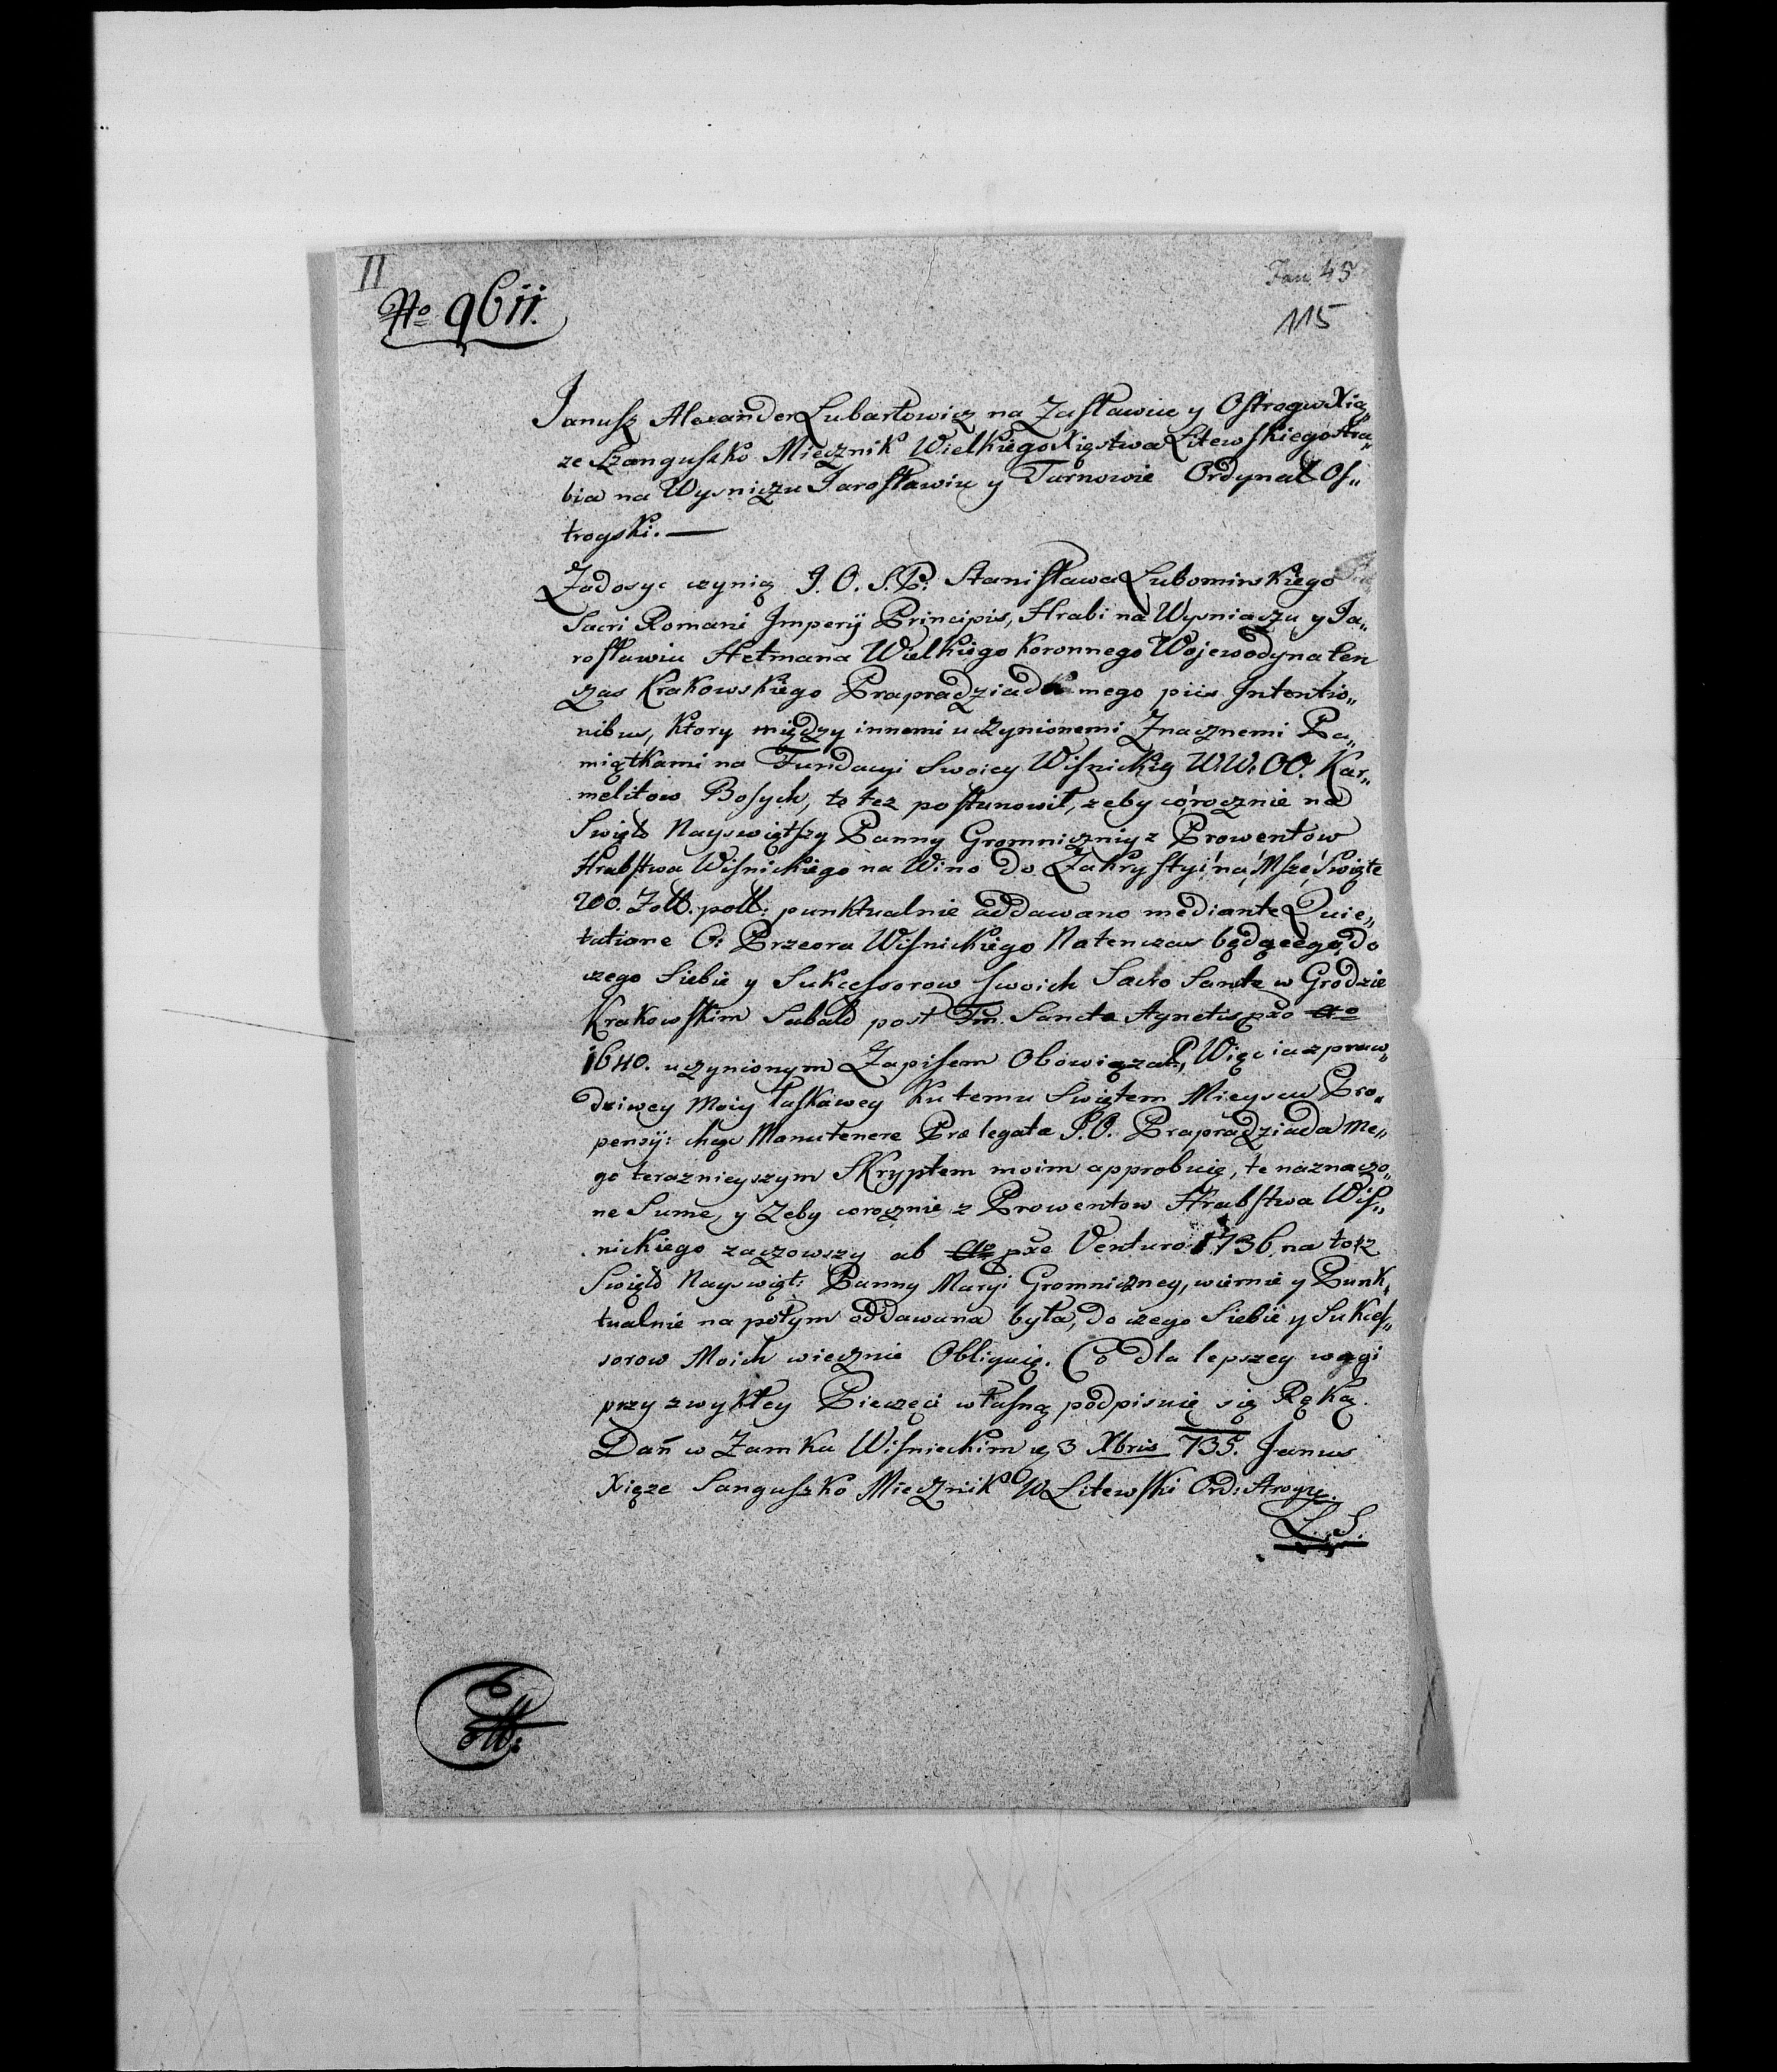 II
No 9611.
Fan 45
115
Janusz Alexander Lubartowicz na Zasławiu y Ostrogu Xią„
że Szanguszko Miecznik Wielkiego Xięstwa Litewskiego Hra„
bia na Wysniczu Jarosławiu y Tarnowie Ordynat Os„
trogski.—
Zadosyc czynią J. O. S. P. Stanisława Lubomirskiego
Sacri Romani Imperij Principis, Hrabi na Wysniczu y Ja„
rosławiu Hetmana Wielkiego Koronnego Wojewody na ten
czas Krakowskiego Prapradziada mego piis Intentio„
nibus, ktory między innemi uczynionemi Znacznemi Pa„
miątkami na Fundacyi Swoiey Wisnickiey W.W. OO. Kar„
melitow Bosych, to też postanowił, zeby corocznie na
Swięto Nayswiętszy Panny Gromniczniy z Prowentow
Hrabstwa Wisnickiego na Wino do Zakrystyi na Msze Swięte
200. Zołł. poll: punktualnie oddawano mediante Quie„
tatione O: Przeora Wisnickiego Natenczas będącego, do
czego Siebie y Sukcessorow swoich Sacro Sancte w Grodzie
Krakowskim Sabato post Fm. Sancta Agnetis pxo Ao
1640. uczynionym Zapisem Obowiązał, Więc ia z praw„
dziwey Moiy łaskawey ku temu Swiętem Mieyscu Pro„
pensij: chcąc Manutenere Præ legata J.O. Prapradziada Me„
go teraznieyszym Skryptem moim approbuię, te naznaczo„
ne Sume, y Zeby corocznie z Prowentow Hrabstwa Wis„
nickiego zaczowszy ab Ao pxe Venturo 1736. na toż
Swięto Nayswięt: Panny Maryi Gromniczney, wiernie y Punk„
tualnie na potym oddawana była, do czego Siebie y Sukces„
sorow Moich wiecznie Obliguię. Co dla lepszey wagi
przy zwykłey Pieczęci własną podpisuię się Ręką.
Dań w Zamku Wisnieckim d 3 Xbris 735. Janus
Xięże Sanguszko Miecznik W Litewski Ord:
L. S.